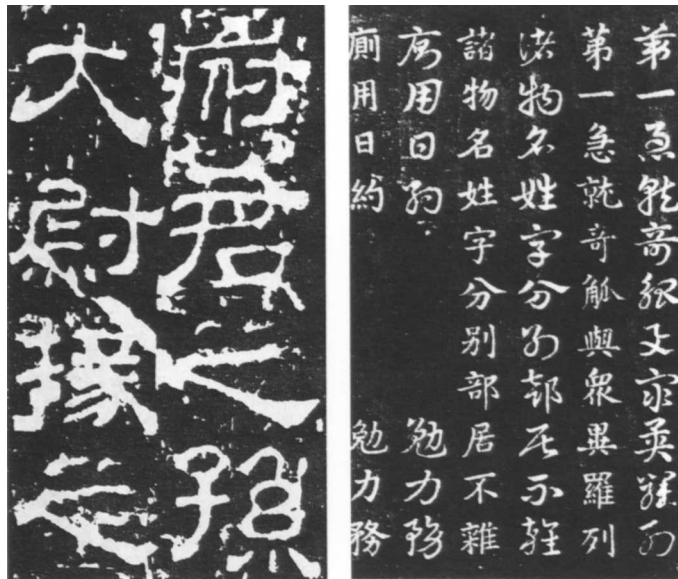 府君之孫
大尉掾之
第一急就奇觚與衆異羅列
第一急就奇觚與衆異羅列
諸物名姓字分別部居不雜
諸物名姓字分別部居不雜
廁用日約 勉力務
廁用日約 勉力務